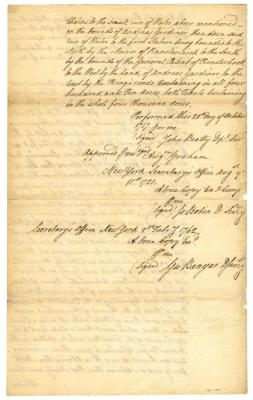 Chains to the small run of Water above mentioned
on the bounds of Andries Gardenier then down said
run of Water to the first Station being bounded to the
North by the Manor of Ranslaerwyck to the South
by the bounds of the General Patent of Kinderhook
to the West by the Land of Andries Gardenier to the
East by the Kings woods Containing in all four
hundred and Ten acres both Tracts containing
in the whole four thousand acres.
Performed this 28th day of October
1717 per me
Signed John Beatty Dp. Sur
Approved of
Signed Augn Graham
New York Secretarys Office Augt
10th 1721
A true Copy Exd & Comp
me
Signed Js Bobin D Secry
Secretarys Office New York 9th Feby 1762
A true Copy Exd
me
Signed Geo Banyar D Secry